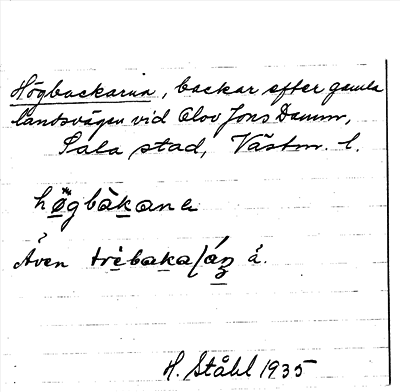 Högbackarna, backar efter gamla
landsvägen vid Olov Jons Damm,
Sala stad, Västm. l.
högbàkana
Även trèbaka
H. Ståhl 1935